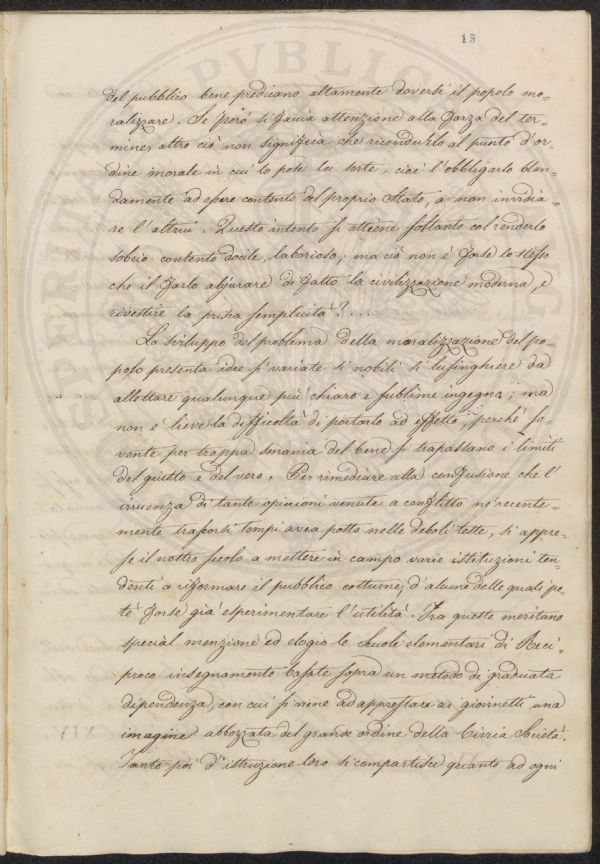 15
del pubblico bene predicano altamente doversi il popolo mo=
ralizzare. Se però si faccia attenzione alla forza del ter=
mine, altro ciò non significa che ricondurlo al punto d'or=
dine morale in cui lo pose la sorte, cioè l'obbligarlo blan=
damente ad essere contento del proprio stato, a non invidia=
re l'altrui. Questo intento si ottiene soltanto col renderlo
sobrio contento docile, laborioso; ma ciò non è forse lo stesso
che il farlo abjurare di fatto la civilizzazione moderna, e
rivestire la prisca semplicità?...
Lo sviluppo del problema della moralizzazione del po=
polo presenta idee sì variate sì nobili sì lusinghiere da
allettare qualunque più chiaro e sublime ingegno; ma
non è lieve la difficoltà di portarlo ad effetto, perchè so=
vente per troppa smania del bene si trapassano i limiti
del giusto e del vero. Per rimediare alla confusione che l'
irruenza di tante opinioni venute a conflitto ne' recente=
mente trascorsi tempi avea posto nelle deboli teste, si appre=
se il nostro secolo a mettere in campo varie istituzioni ten=
denti a riformare il pubblico costume, d'alcune delle quali po=
tè forse già esperimentare l'utilità. Fra queste meritano
special menzione ed elogio le Scuole elementari di Reci=
proco insegnamento basate sopra un metodo di graduata
dipendenza, con cui si viene ad apprestare ai giovinetti una
imagine abbozzata del grande ordine della Civica Società.
Tanto poi d'istruzione loro si compartisce quanto ad ogni